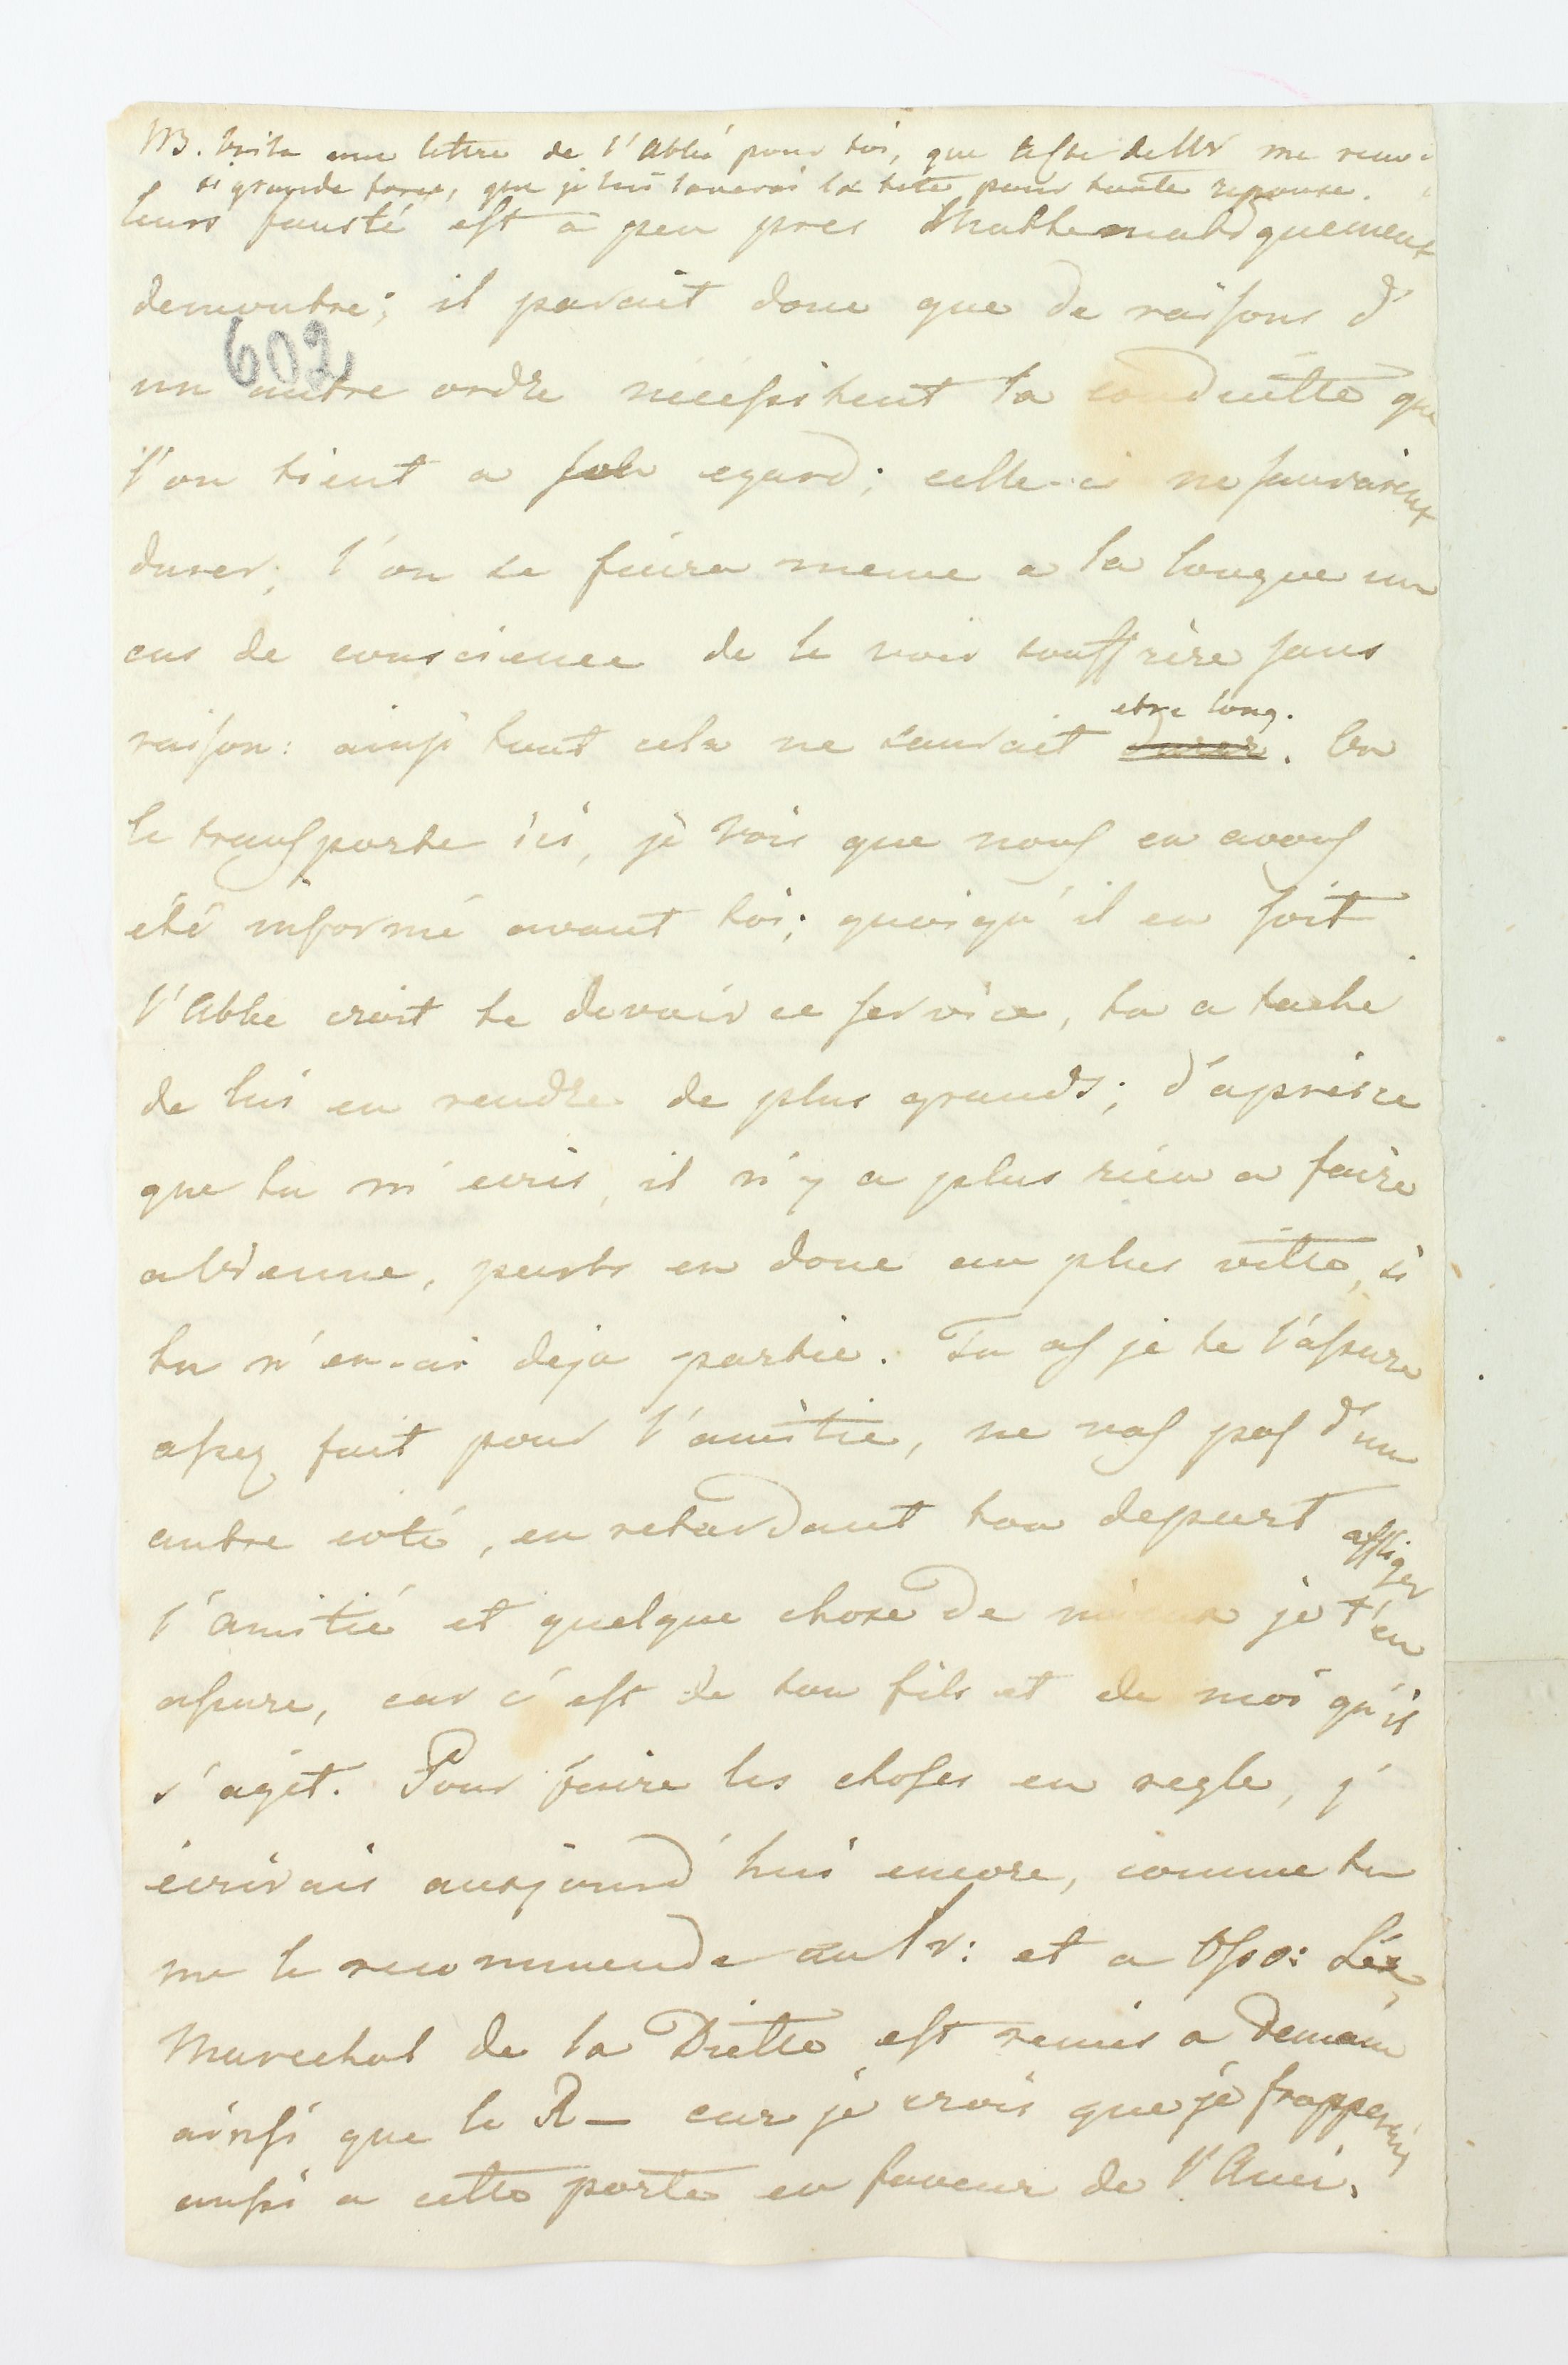 NB. Voila une lettre de l'Abbé pour toi, que me renvoi
si grande farce, que je lui laverai la tete pour toute reponse.
leurs fausté est a peu pres Mathematiquement
demontre; il parait donc que de raisons d'
602
un autre ordre necessitent la conduitte que
l'on tient a son egard; celle-ci ne sauraient
durer; l'on se faira meme a la longue un
cas de conscience de le voir souffrire sans
raison: ainsi tout cela ne saurait durer. etre long. On
le transporte ici, je vois que nous en avons
été informé avant toi; quoiqu'il en soit
l'Abbe croit te devoir ce service, tu a taché
de lui en rendre de plus grands; d'après ce
que tu m'ecris, il n'y a plus rien a faire
a Vienne, parts en donc au plus vitte, si
tu n'en-ai deja partie. Tu as je te l'assure
assez fait pour l'amitie, ne vas pas d'un
autre coté, en retardant ton depart affliger
l'amitié et quelque chose de mieux je t'en
assure, car c'est de ton fils et de moi qu'il
s'agit. Pour faire les choses en regle, j'
ecrivais aujourd'hui encore, comme tu
me le recommende au Pr: et a Le
Marechal de la Diette est remis a demain
ainsi que le R— car je crois que je frapperais
aussi a cette porte en faveur de l'Ami.